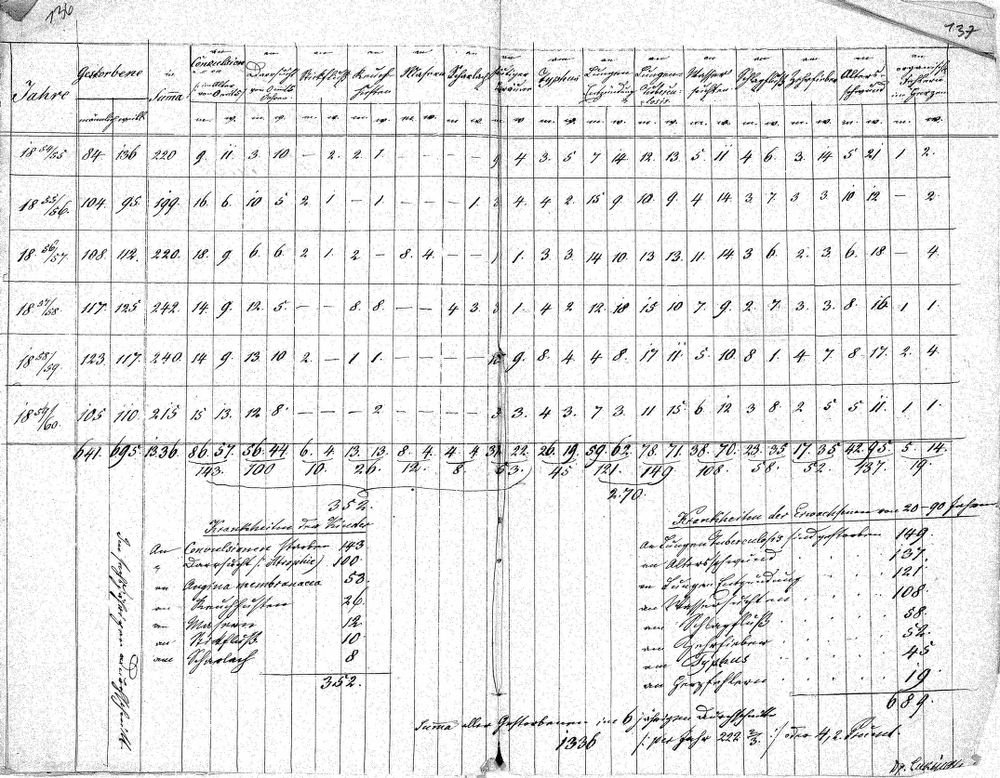 136
137
Jahre Gestorbene in Summa an Convulsionen an Darrsucht an Stickfluß an Keuchhusten an Masern an Scharlach an Typhus an Lungen Entzündung an Lungen Tuberculosis an Wassersuchten an Schlagfluß an Zehrfieber an Altersschwund an organisch. Fehlern im Herzen
männlich weibl. m. w. m. w. m. w. m. w. m. w. m. w. m. w. m. w. m. w. m. w. m. w. m. w. m. w. m. w.
18 54/55 84 136 220 9. 11 3. 10 – 2. 2 1 9 4 3. 5 7 14 12. 13. 5. 11 4 6. 3. 14 5 21 1 2.
18 55/56. 104. 95 199 16 6. 10 5 2 1 – 1. – – – 1. 3 4. 4 2. 15 9. 10. 9. 4 14 3 7. 3 3 10 12 – 2.
18 56/57. 108. 112. 220. 18. 9. 6. 6. 2 1. 2 – 8. 4. – – 1. 3 3 14 10. 13 13. 11. 14 3 6. 2. 3. 6. 18 – 4.
18 57/58. 117. 125 242. 14 9. 12. 5. – – 8 8. – – 4 3. 3 1. 4 2 12. 18 15 10 7. 9. 2 7. 3. 3. 8. 16. 1 1.
18 58/59. 123. 117. 240. 14 9. 13. 10 2. – 1 1. – – – – 9. 8. 4 4 8. 17 11. 5. 10. 8 1. 4 7. 8 17. 2. 4.
18 59/60. 105 110. 215 15 13. 12 8. – – – 2. – – – – 3. 4 3. 7 3. 11 15. 6 12 3 8. 2 5 5 11. 1 1.
641. 695. 1336. 86. 57. 56. 44 6. 4. 13. 13 8. 4. 4. 4 31. 22. 26. 19. 59. 62. 78. 71. 38. 70. 23. 35 17. 35 42. 95. 5. 14.
143. 100 10. 26. 12. 8. 53. 45 121. 149 108. 58. 52. 137. 19.
270.
352.
Krankheiten der Kinder
An Convulsionen starben 143
" Darrsucht (: Atrophie) 100.
an Angina membranacea 53.
an Keuchhusten 26.
an Masern 12.
an Stickfluß 10
am Scharlach 8
352.
Krankheiten der Erwachsenen von 20–90 Jahren
An Lungen Tuberculosis sind gestorben 149.
an Altersschwund 137.
an Lungen Entzündung 121.
an Wassersuchten 108.
am Schlagfluß 58.
am Zehrfieber 52.
am Typhus 45
an Herzfehlern 19
689.
Summa aller Gestorbenen im 6 jährigen Durchschnitte
1336 (: per Jahr 222 2/3. :) oder 4,2 Procent.